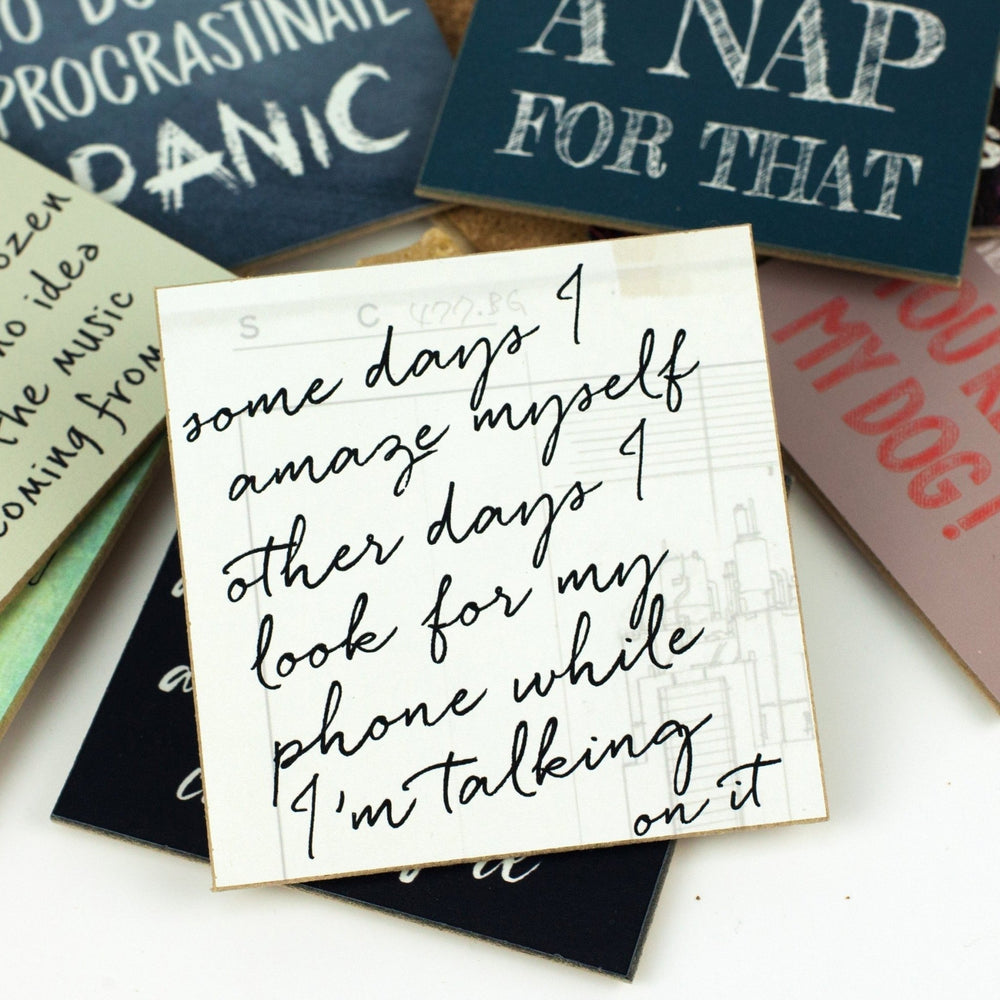 TO DO
PROCRASTINATE
PANIC
A NAP
FOR THAT
no idea
the music
coming from
MY DOG!
S C 477.BG
some days I
amaze myself
other days I
look for my
phone while
I'm talking
on it